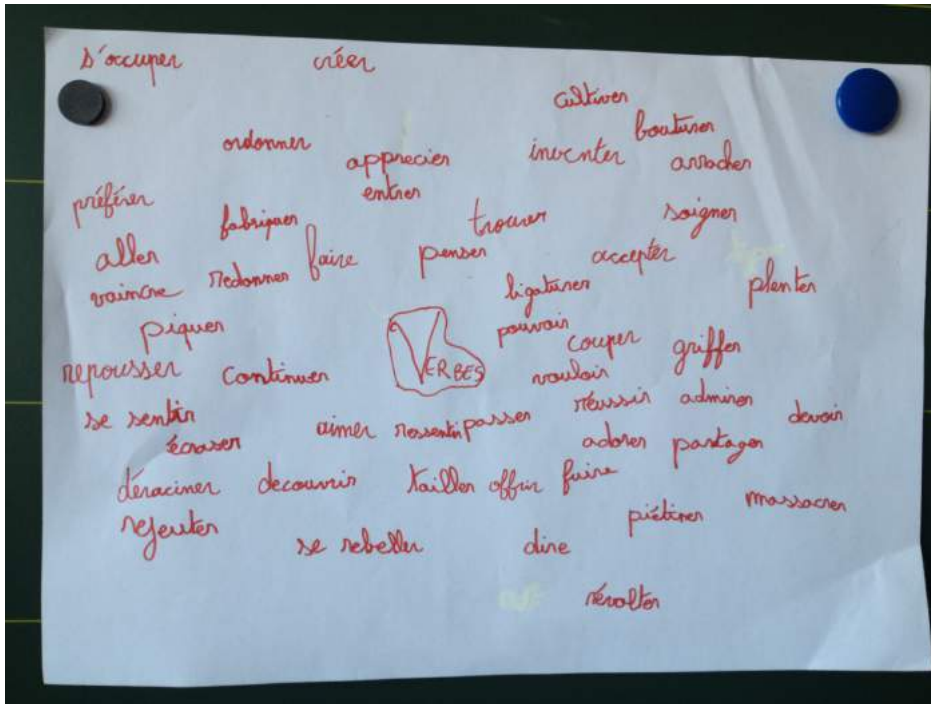 s'occuper créer
cultiver
bouturer
ordonner apprecier inventer arracher
préférer entrer
fabriquer trouver soigner
aller faire penser accepter
vaincre redonner ligaturer plenter
piquer pouvoir
couper griffer
repousser continuer VERBES vouloir
se sentir aimer ressentir passer réussir admirer devoir
écraser adorer partager
déraciner decouvrir tailler offrir fuire
rejeuter piétiner massacrer
se rebeller dire
révolter